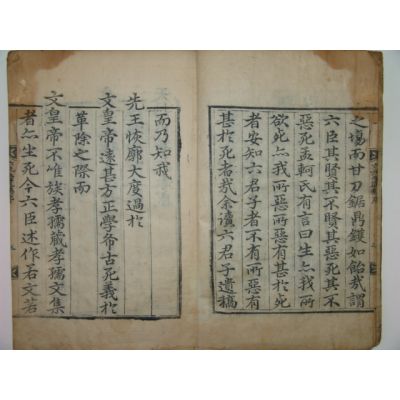 之場而甘刀鋸鼎鑊如飴哉謂
六臣其賢其不賢其惡死其不
惡死孟軻氏有言曰生亦我所
欲死亦我所惡所惡有甚於死
者安知六君子者不有所惡有
甚於死者哉余讀六君子遺稿
而乃知我
先王恢廓大度過於
文皇帝遠甚方正學希古死義於
革除之際而
文皇帝不惟族孝孺藏孝孺文集
者亦坐死今六臣述作右文若